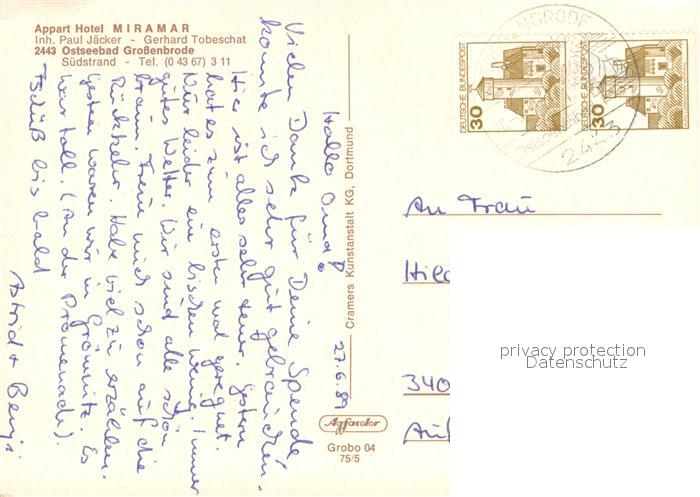 Appart Hotel MIRAMAR
Inh. Paul Jäcker - Gerhard Tobeschat
2443 Ostseebad Großenbrode
Südstrand - Tel. (0 43 67) 3 11
Hallo Omi!
Vielen Dank für Deine Spende
konnte ich sehr gut gebrauchen.
Hier ist alles sehr teuer. Gestern
hat es zum ersten mal geregnet.
Nur leider ein bischen wenig. Immer
gutes Wetter. Wir sind alle schön
braun. Freue mich schon auf die
Rückkehr. Habe viel zu erzählen.
Gestern waren wir in Grömnitz. Es
war toll. (An der Promenade).
Tschüß bis bald
Astrid + Benji
27.6.89
Cramers Kunstanstalt KG, Dortmund
Agfacolor
Grobo 04
75/5
DEUTSCHE BUNDESPOST
30
DEUTSCHE BUNDESPOST
30
NBRODE
2443
An Frau
Hild
340
privacy protection
Datenschutz